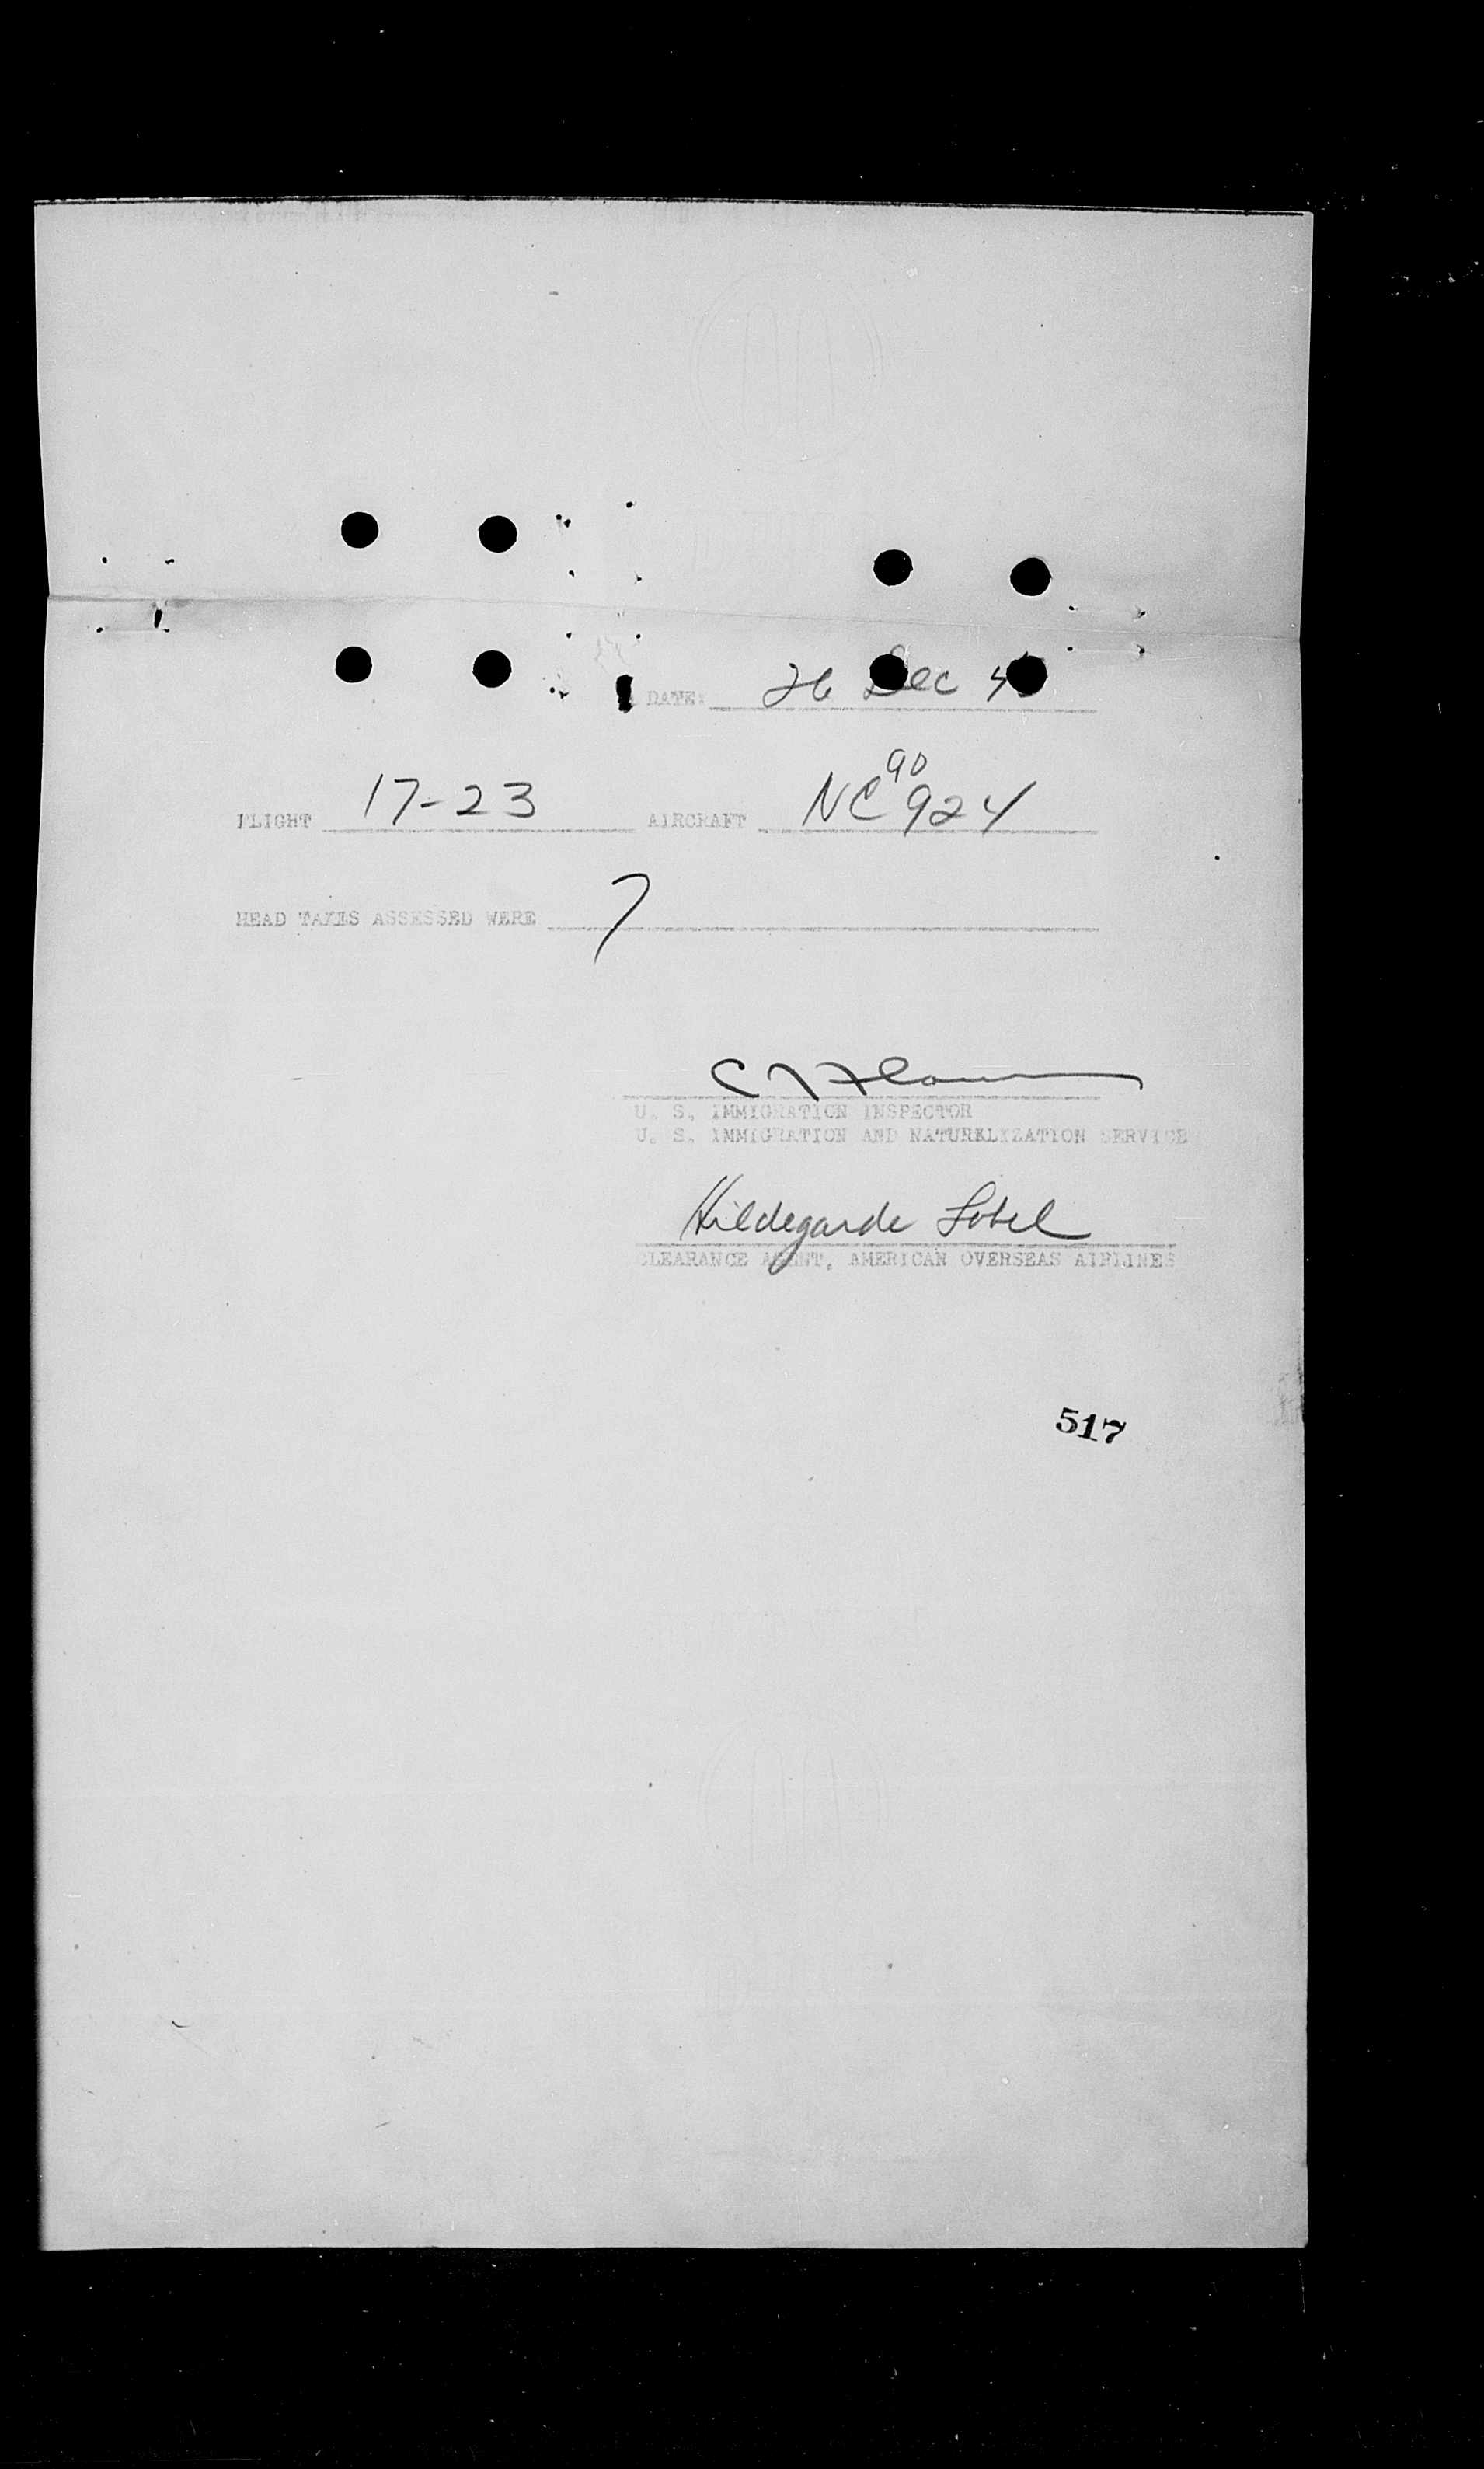 DATE: 26 Dec
FLIGHT 17-23 AIRCRAFT NC 90924
HEAD TAXES ASSESSED WERE 7
U. S. IMMIGRATION INSPECTOR
U. S. IMMIGRATION AND NATURELIZATION SERVICE
Hildegarde Sobel
CLEARANCE AGENT, AMERICAN OVERSEAS AIRLINES
517